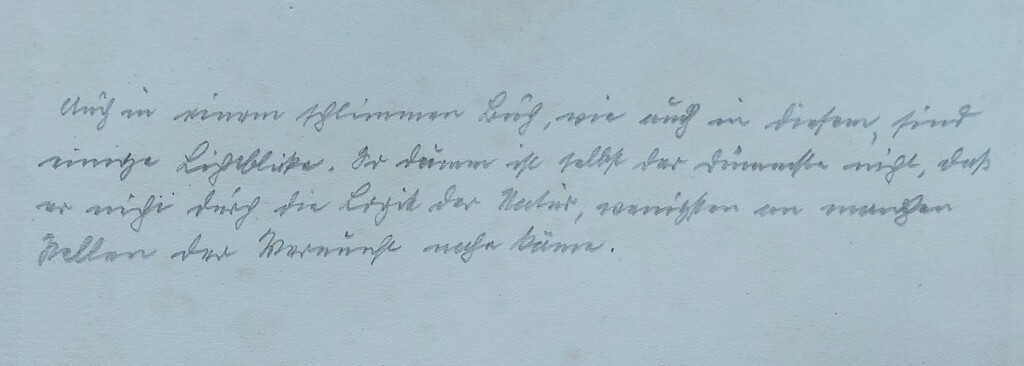 Auch in einem schlimmen Buch, wie auch in diesem, sind
einige Lichtblicke. So dumm ist selbst der Dümmste nicht, daß
er nicht durch die Logik der Natur, wenigsten an manchen
Stellen der Vernunft nahe käme.